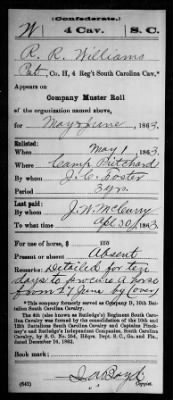 (Confederate.)
W 4 Cav. S. C.
R. R. Williams
Pvt, Co. H, 4 Reg't South Carolina Cav.*
Appears on
Company Muster Roll
of the organization named above,
for May & June, 1863.
Enlisted:
When May 1, 1863.
Where Camp Pritchard
By whom J. C. Foster
Period 3 yrs.
Last paid:
By whom J. W. McCurry
To what time Apl 30, 1863.
For use of horse, $
Present or absent Absent
Remarks: Detailed for ten
days to procure a horse
from 27 June by Co
*This company formerly served as Company D, 10th Battalion South Carolina Cavalry.
The 4th (also known as Rutledge's) Regiment South Carolina Cavalry was formed by the consolidation of the 10th and 12th Battalions South Carolina Cavalry and Captains Pinckney's and Rutledge's Independent Companies, South Carolina Cavalry, by S. O. No. 254, Hdqrs. Dept. S. C., Ga. and Fla., dated December 16, 1862.
Book mark:
(642)
Copyist.